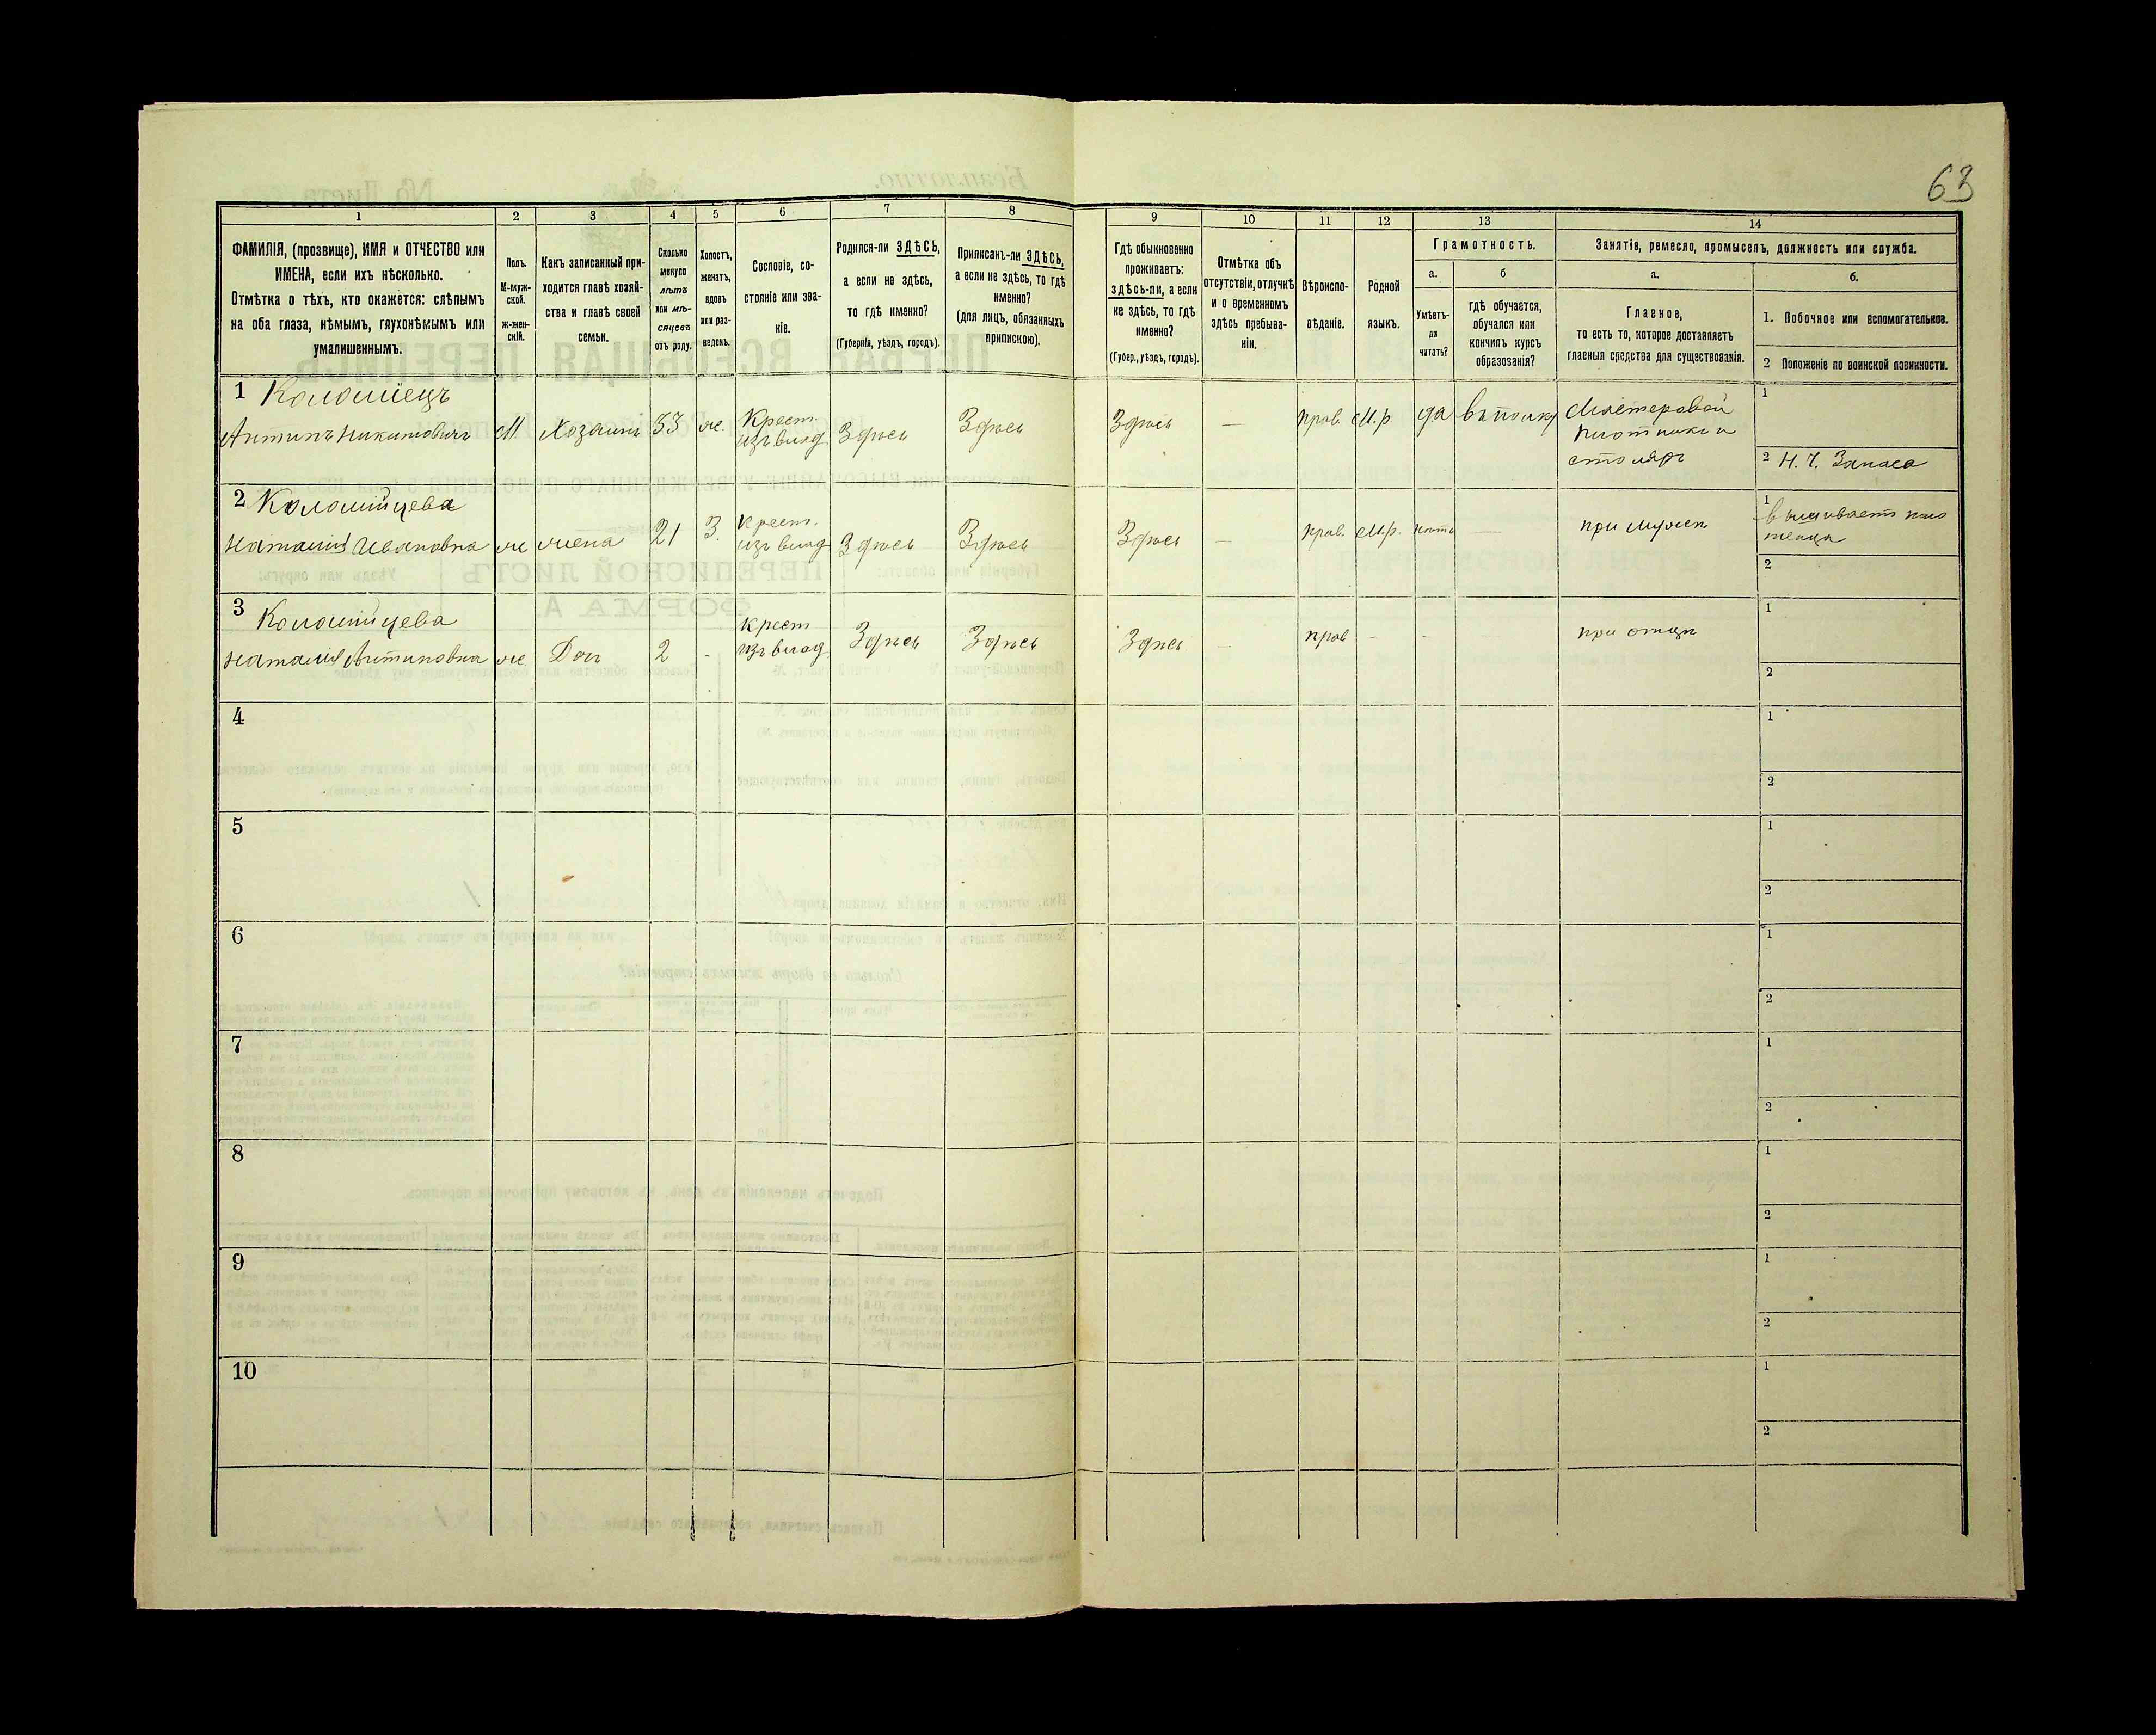 63
1
2
3
4
5
6
7
8
9
10
11
12
13
14
ФАМИЛІЯ, (прозвище), ИМЯ и ОТЧЕСТВО или
ИМЕНА, если ихъ нѣсколько.
Отмѣтка о тѣхъ, кто окажется: слѣпымъ
на оба глаза, нѣмымъ, глухонѣмымъ или
умалишеннымъ.
Полъ.
М-муж-
ской.
ж-жен-
скій.
Какъ записанный при-
ходится главѣ хозяй-
ства и главѣ своей
семьи.
Сколько
минуло
лѣтъ
или мѣ-
сяцевъ
отъ роду.
Холостъ,
женатъ,
вдовъ
или раз-
веденъ.
Сословіе, со-
стояніе или зва-
ніе.
Родился-ли ЗДѢСЬ,
а если не здѣсь,
то гдѣ именно?
(Губернія, уѣздъ, городъ).
Приписанъ-ли ЗДѢСЬ,
а если не здѣсь, то гдѣ
именно?
(для лицъ, обязанныхъ
припискою).
Гдѣ обыкновенно
проживаетъ:
здѣсь-ли, а если
не здѣсь, то гдѣ
именно?
(Губер., уѣздъ, городъ).
Отмѣтка объ
отсутствіи, отлучкѣ
и о временномъ
здѣсь пребыва-
ніи.
Вѣроиспо-
вѣданіе.
Родной
языкъ.
Грамотность.
а.
Умѣетъ-
ли
читать?
б
гдѣ обучается,
обучался или
кончилъ курсъ
образованія?
Занятіе, ремесло, промыселъ, должность или служба.
а.
Главное,
то есть то, которое доставляетъ
главныя средства для существованія.
б.
1. Побочное или вспомогательное.
2 Положеніе по воинской повинности.
1 Коломіецъ
Антипъ Никитовичъ М. Хозяинъ 33 ж. Крест. изъ влад Здѣсь Здѣсь Здѣсь — прав. М.р. да въ полку Мастеровой
плотникъ и
столяръ
1
2 Н. Ч. Запаса
2 Коломійцева
Наталія Ивановна ж жена 21 З. Крест. изъ влад Здѣсь Здѣсь Здѣсь — прав. М.р. нѣтъ — при мужѣ
1
вышиваетъ поло
тенца
2
3 Коломійцева
Наталія Антиповна ж. Доч 2 - крест изъ влад Здѣсь Здѣсь Здѣсь — прав - - - при отцѣ
1
2
4
1
2
5
1
2
6
1
2
7
1
2
8
1
2
9
1
2
10
1
2